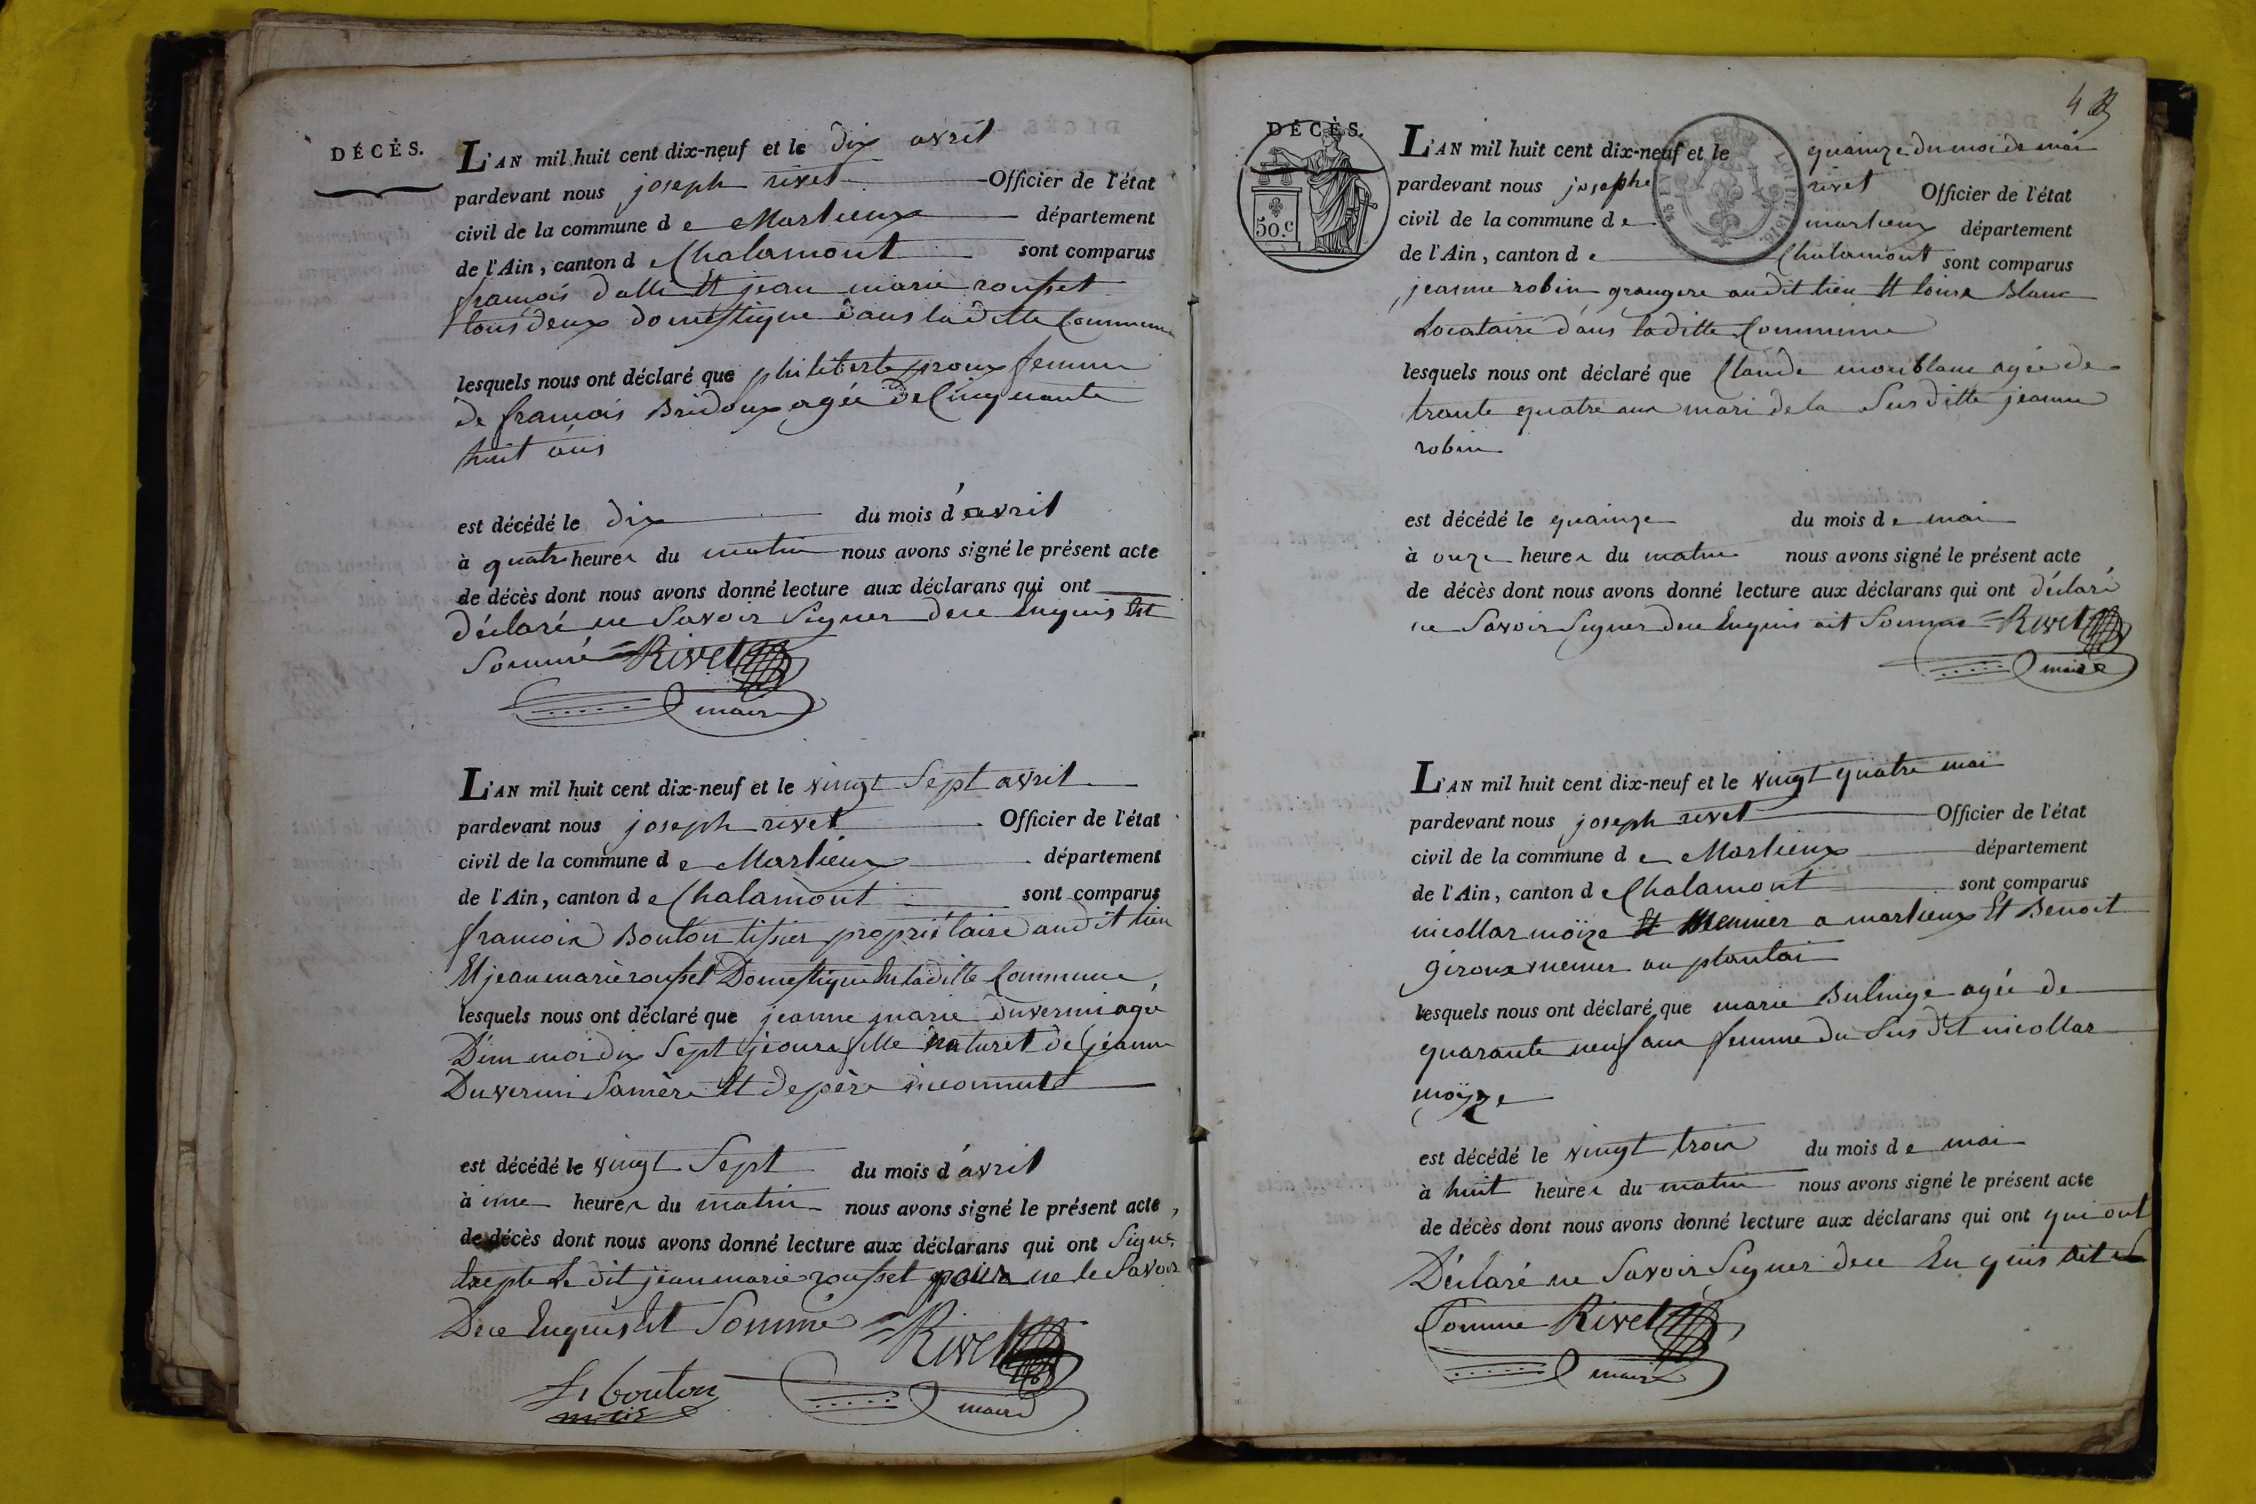 DÉCÈS.
L'AN mil huit cent dix-neuf et le dix avril
pardevant nous joseph rivet Officier de l'état
civil de la commune d e Marlieux département
de l'Ain, canton d e Chalamont sont comparus
francois et jean marie rousset
tous deux domestique dans la ditte Commune
lesquels nous ont déclaré que philiberte proux femme
de francois Bridoux agée de Cinquante
huit ans
est décédé le dix du mois d'avril
à quatre heures du matin nous avons signé le présent acte
de décès dont nous avons donné lecture aux déclarans qui ont
déclaré ne Savoir Signer dece Enquis Et
Sommé Rivet
maire
L'AN mil huit cent dix-neuf et le vingt Sept avril
pardevant nous joseph rivet Officier de l'état
civil de la commune d e Marlieux département
de l'Ain, canton d e Chalamont sont comparus
francois Bouton tissier propriétaire audit lieu
Et jean marie rousset Domestique En la ditte Commune
lesquels nous ont déclaré que jeanne marie duverni agé
D'un moi dix Sept jours fille naturel de jeanne
Duverni Samère Et de père inconnut
est décédé le vingt Sept du mois d'avril
à une heures du matin nous avons signé le présent acte
de décès dont nous avons donné lecture aux déclarans qui ont Signé
Excepté le dit jean marie rousset pour ne le Savoir
Dece Enquis Et Sommé Rivet
bouton
maire
4
DÉCÈS.
50.c
1816.
L'AN mil huit cent dix-neuf et le quainze du moi de mai
pardevant nous josephe rivet Officier de l'état
civil de la commune d e marlieux département
de l'Ain, canton d e Chalamont sont comparus
jeanne robin grangere audit lieu Et Louis Blanc
Locataire dans laditte Commune
lesquels nous ont déclaré que Claude monblanc agée de
trante quatre ans mari de la Susditte jeanne
robin
est décédé le quainze du mois d e mai
à onze heures du matin nous avons signé le présent acte
de décès dont nous avons donné lecture aux déclarans qui ont déclaré
ne Savoir Signer dece Enquis ait Sommé Rivet
maire
L'AN mil huit cent dix-neuf et le vingt quatre mai
pardevant nous joseph rivet Officier de l'état
civil de la commune d e Marlieux département
de l'Ain, canton d e Chalamont sont comparus
nicollas moïze Meunier a marlieux Et Benoit
giroux meunier au plantai
lesquels nous ont déclaré que marie Bulinge agée de
quarante neuf ans femme du Sus dit nicollas
moÿze
est décédé le vingt trois du mois d e mai
à huit heures du matin nous avons signé le présent acte
de décès dont nous avons donné lecture aux déclarans qui ont qui ont
Déclaré ne Savoir Signer dece En quis ait
Sommé Rivet
maire